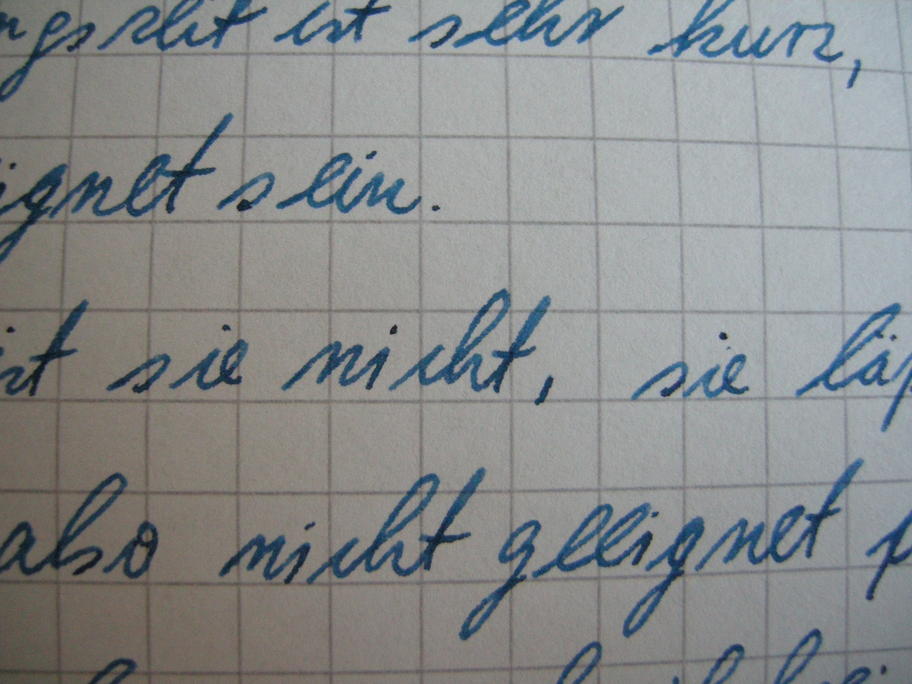 ngszeit ist sehr kurz,
ignet sein.
ist sie nicht, sie
also nicht geeignet